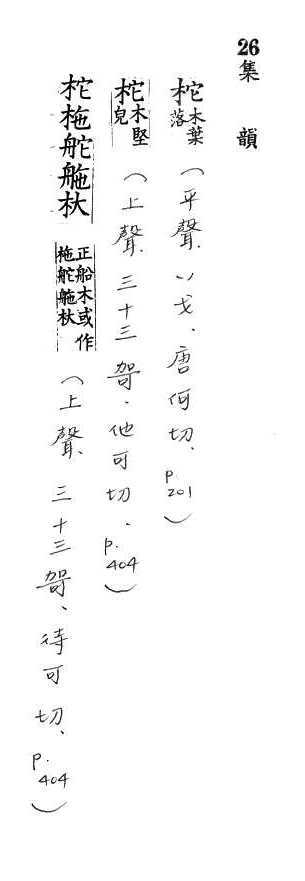 26集韻
柁木葉落(平聲八戈、唐何切、p.201)
柁木堅皃(上聲三十三哿、他可切、p.404)
柁柂舵䑨杕正船木或作柂舵䑨杕(上聲三十三哿、待可切、p.404)